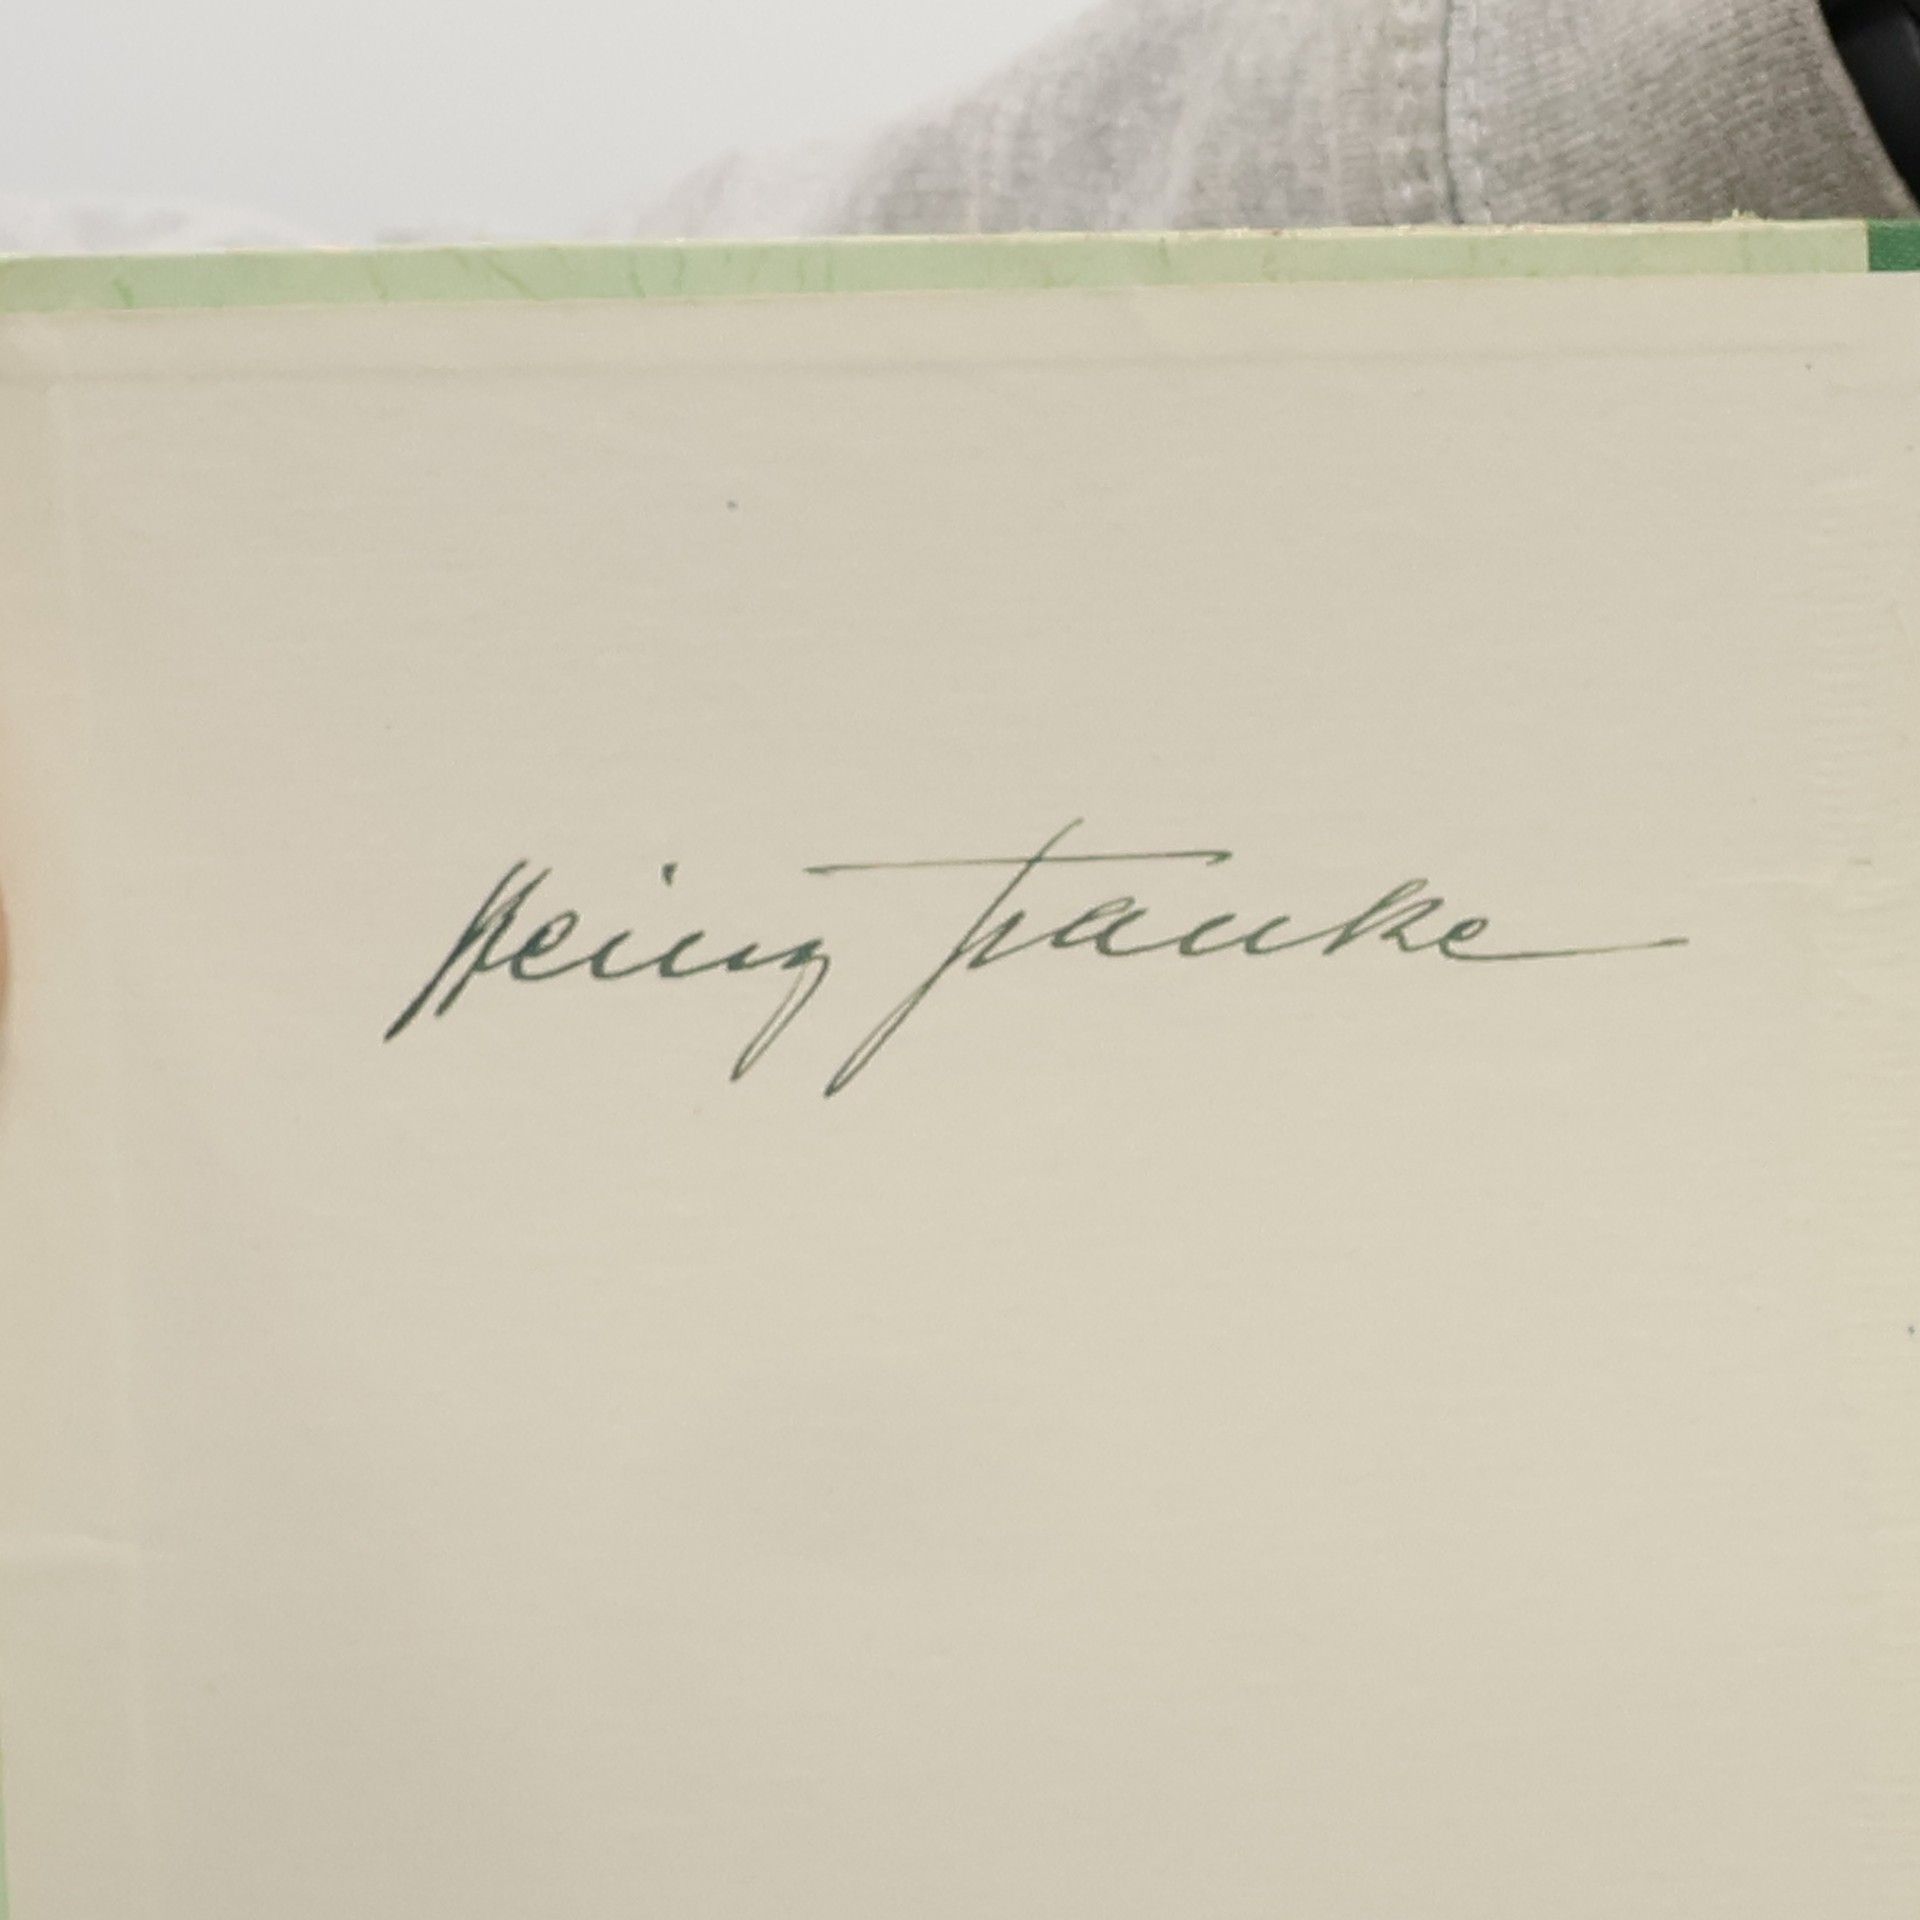 Heinz Franke